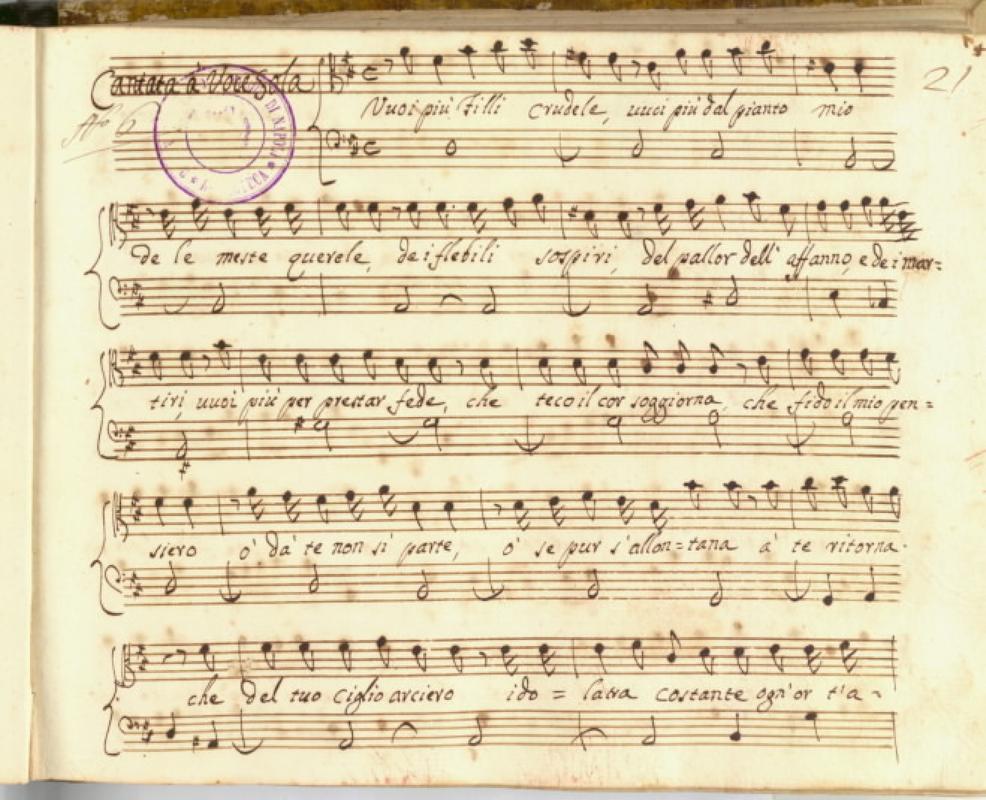 Cantata à Voce Sola
21
Vuoi più Filli crudele, vuoi più dal pianto mio
DI NAPOLI
de le meste querele, dei flebili sospiri, del pallor dell' affanno, e de i mar=
tiri, vuoi più per prestar fede, che teco il cor soggiorna, che fido il mio pen=
siero o' da' te non si parte, o' se pur s'allon=tana a' te ritorna.
che del tuo ciglio arciero ido = latra costante ogn'or t'a=